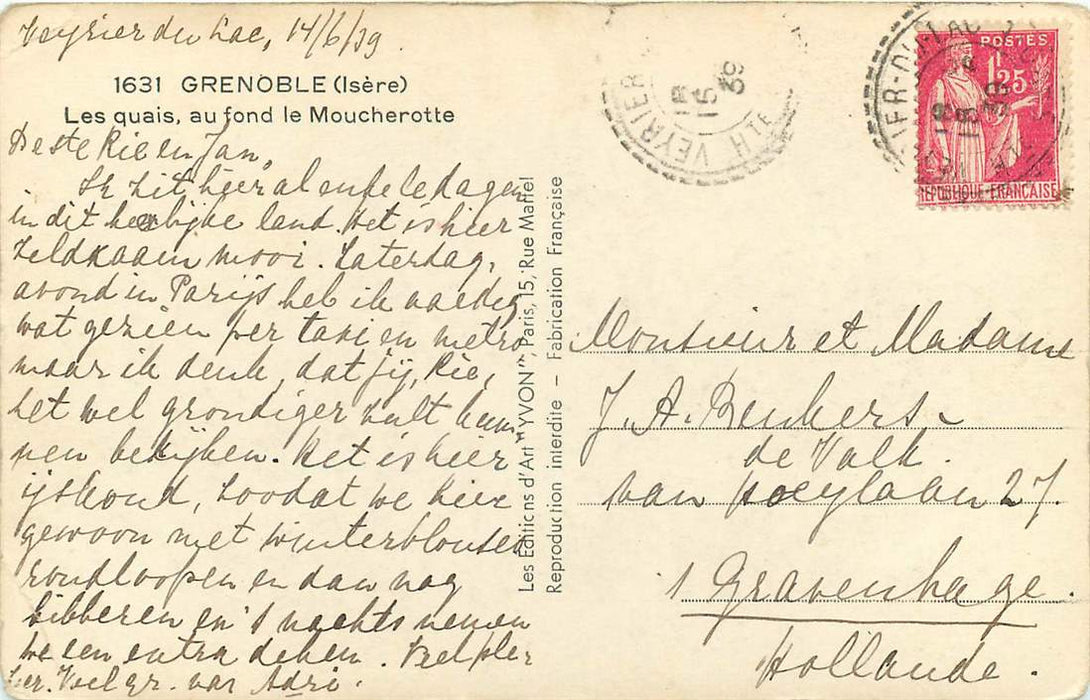 Veyrier du Lac, 14/6/39.
1631 GRENOBLE (Isère)
Les quais, au fond le Moucherotte
Beste Rie en Jan,
Ik zit hier al enkele dagen
in dit heerlijke land. Het is hier
zeldzaam mooi. Zaterdag,
avond in Parijs heb ik aardig
wat gezien per taxi en metro
maar ik denk, dat jij, Rie,
het wel grondiger zult kun
nen bekijken. Het is hier
ijskoud, zoodat we hier
gewoon met winterblouses
rondloopen en dan nog
bibberen en 's nachts nemen
we een extra deken.
Veel gr. van Adri.
Les Editions d'Art "YVON", Paris, 15, Rue Martel
Reproduction interdite — Fabrication Française
VEYRIER
15
39
H VEYRIER
POSTES
1F25
REPUBLIQUE FRANÇAISE
Monsieur et Madame
J. A. Benkers-
de Valk.
van 27.
's Gravenhage.
Hollande.